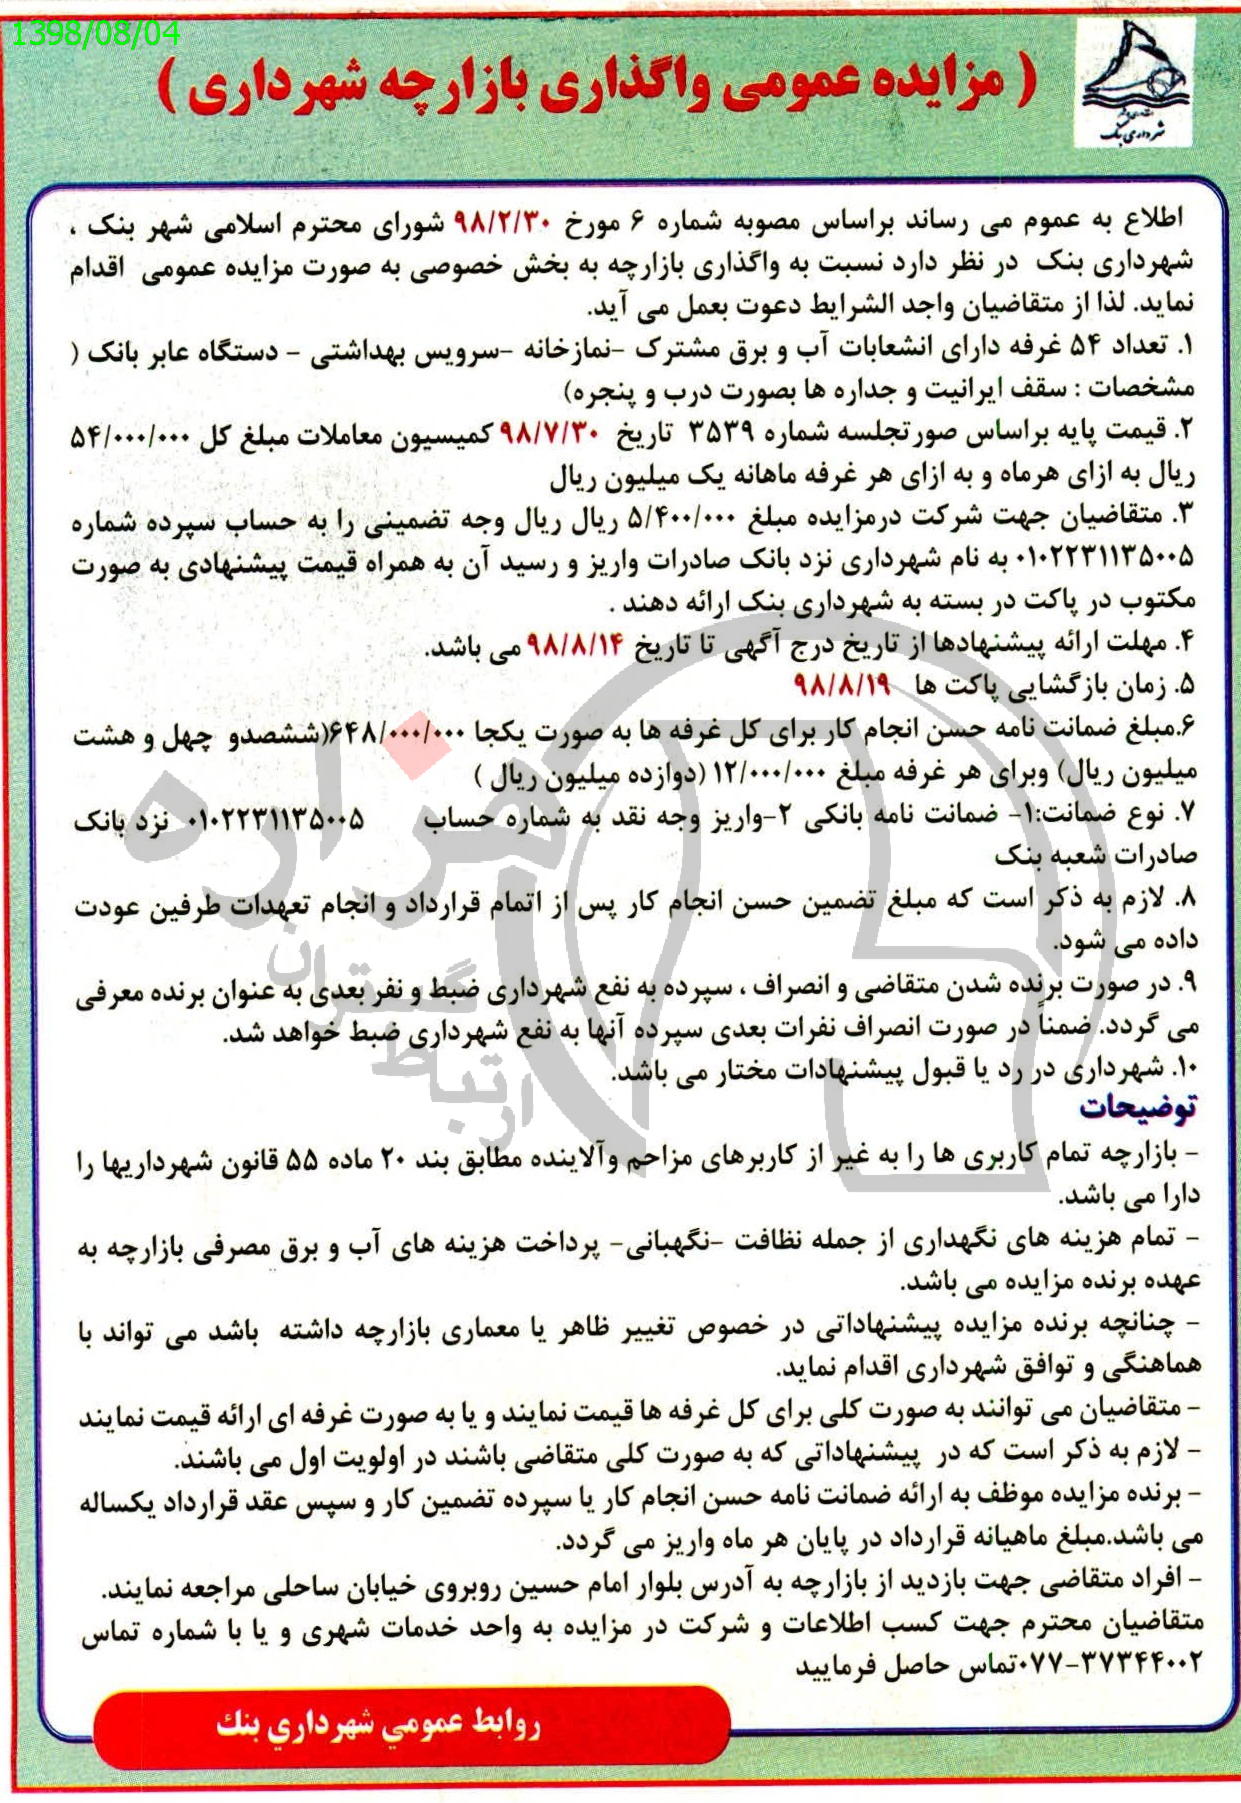 1398/08/04
( مزایده عمومی واگذاری بازارچه شهرداری )
شهرداری بنک
اطلاع به عموم می رساند براساس مصوبه شماره ۶ مورخ ۹۸/۲/۳۰ شورای محترم اسلامی شهر بنک ،
شهرداری بنک در نظر دارد نسبت به واگذاری بازارچه به بخش خصوصی به صورت مزایده عمومی اقدام
نماید. لذا از متقاضیان واجد الشرایط دعوت بعمل می آید.
۱. تعداد ۵۴ غرفه دارای انشعابات آب و برق مشترک -نمازخانه -سرویس بهداشتی - دستگاه عابر بانک (
مشخصات : سقف ایرانیت و جداره ها بصورت درب و پنجره)
۲. قیمت پایه براساس صورتجلسه شماره ۳۵۳۹ تاریخ ۹۸/۷/۳۰ کمیسیون معاملات مبلغ کل ۵۴/۰۰۰/۰۰۰
ریال به ازای هرماه و به ازای هر غرفه ماهانه یک میلیون ریال
۳. متقاضیان جهت شرکت درمزایده مبلغ ۵/۴۰۰/۰۰۰ ریال ریال وجه تضمینی را به حساب سپرده شماره
۰۱۰۲۲۳۱۱۳۵۰۰۵ به نام شهرداری نزد بانک صادرات واریز و رسید آن به همراه قیمت پیشنهادی به صورت
مکتوب در پاکت در بسته به شهرداری بنک ارائه دهند .
۴. مهلت ارائه پیشنهادها از تاریخ درج آگهی تا تاریخ ۹۸/۸/۱۴ می باشد.
۵. زمان بازگشایی پاکت ها ۹۸/۸/۱۹
۶.مبلغ ضمانت نامه حسن انجام کار برای کل غرفه ها به صورت یکجا ۶۴۸/۰۰۰/۰۰۰(ششصدو چهل و هشت
میلیون ریال) وبرای هر غرفه مبلغ ۱۲/۰۰۰/۰۰۰ (دوازده میلیون ریال )
۷. نوع ضمانت:۱- ضمانت نامه بانکی ۲-واریز وجه نقد به شماره حساب ۰۱۰۲۲۳۱۱۳۵۰۰۵ نزد بانک
صادرات شعبه بنک
۸. لازم به ذکر است که مبلغ تضمین حسن انجام کار پس از اتمام قرارداد و انجام تعهدات طرفین عودت
داده می شود.
۹. در صورت برنده شدن متقاضی و انصراف ، سپرده به نفع شهرداری ضبط و نفر بعدی به عنوان برنده معرفی
می گردد. ضمناً در صورت انصراف نفرات بعدی سپرده آنها به نفع شهرداری ضبط خواهد شد.
۱۰. شهرداری در رد یا قبول پیشنهادات مختار می باشد.
توضیحات
- بازارچه تمام کاربری ها را به غیر از کاربرهای مزاحم وآلاینده مطابق بند ۲۰ ماده ۵۵ قانون شهرداریها را
دارا می باشد.
- تمام هزینه های نگهداری از جمله نظافت -نگهبانی- پرداخت هزینه های آب و برق مصرفی بازارچه به
عهده برنده مزایده می باشد.
- چنانچه برنده مزایده پیشنهاداتی در خصوص تغییر ظاهر یا معماری بازارچه داشته باشد می تواند با
هماهنگی و توافق شهرداری اقدام نماید.
- متقاضیان می توانند به صورت کلی برای کل غرفه ها قیمت نمایند و یا به صورت غرفه ای ارائه قیمت نمایند
- لازم به ذکر است که در پیشنهاداتی که به صورت کلی متقاضی باشند در اولویت اول می باشند.
- برنده مزایده موظف به ارائه ضمانت نامه حسن انجام کار یا سپرده تضمین کار و سپس عقد قرارداد یکساله
می باشد.مبلغ ماهیانه قرارداد در پایان هر ماه واریز می گردد.
- افراد متقاضی جهت بازدید از بازارچه به آدرس بلوار امام حسین روبروی خیابان ساحلی مراجعه نمایند.
متقاضیان محترم جهت کسب اطلاعات و شرکت در مزایده به واحد خدمات شهری و یا با شماره تماس
۰۷۷-۳۷۳۴۴۰۰۲تماس حاصل فرمایید
روابط عمومي شهرداري بنك
هزاره
ارتباط گستران